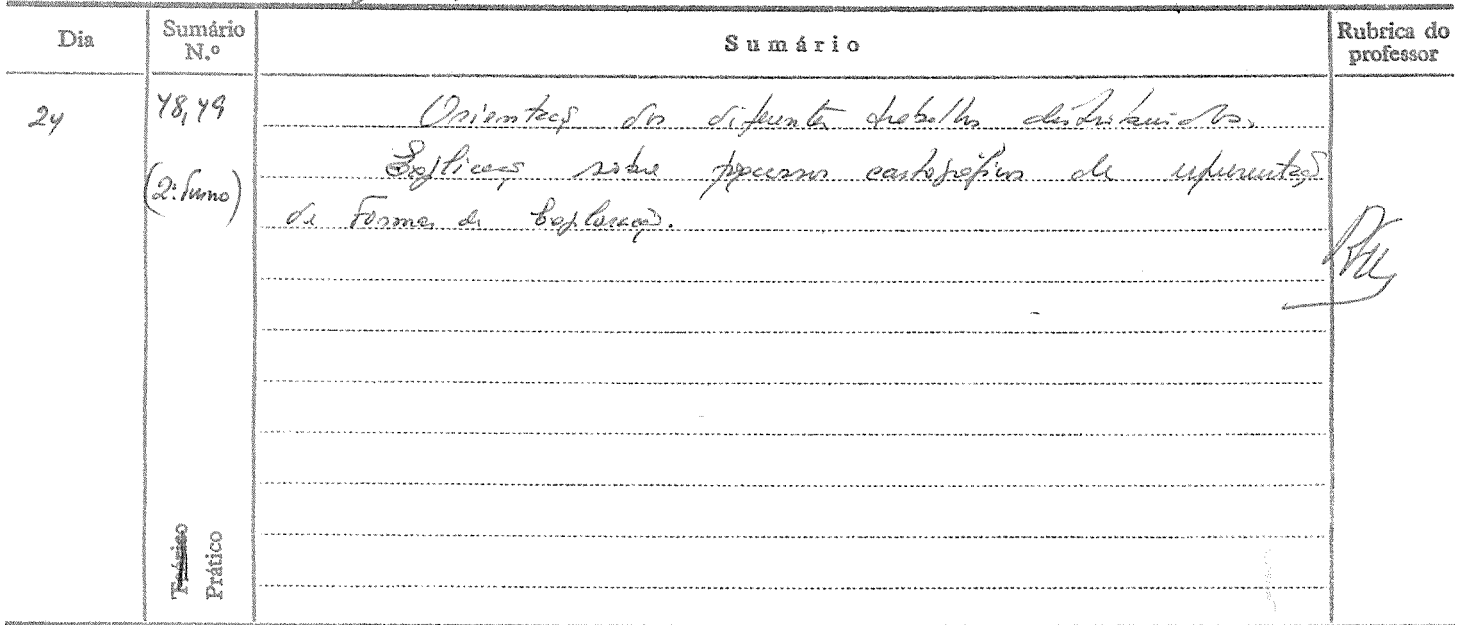 Dia
Sumário
N.º
Sumário
Rubrica do
professor
24
48, 49
(2º Turno)
Orientaçã dos diferentes trabalhos distribuidos.
Explicaçã sobre processos cartográficos de representaçã
de Formas de Exploraçã.
Teórico
Prático